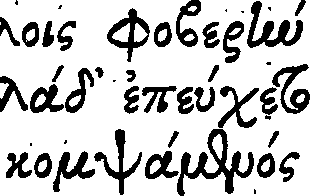 λοις Φοβερὶω
λάδ' ἐπεύχετ
κομψάμθυός